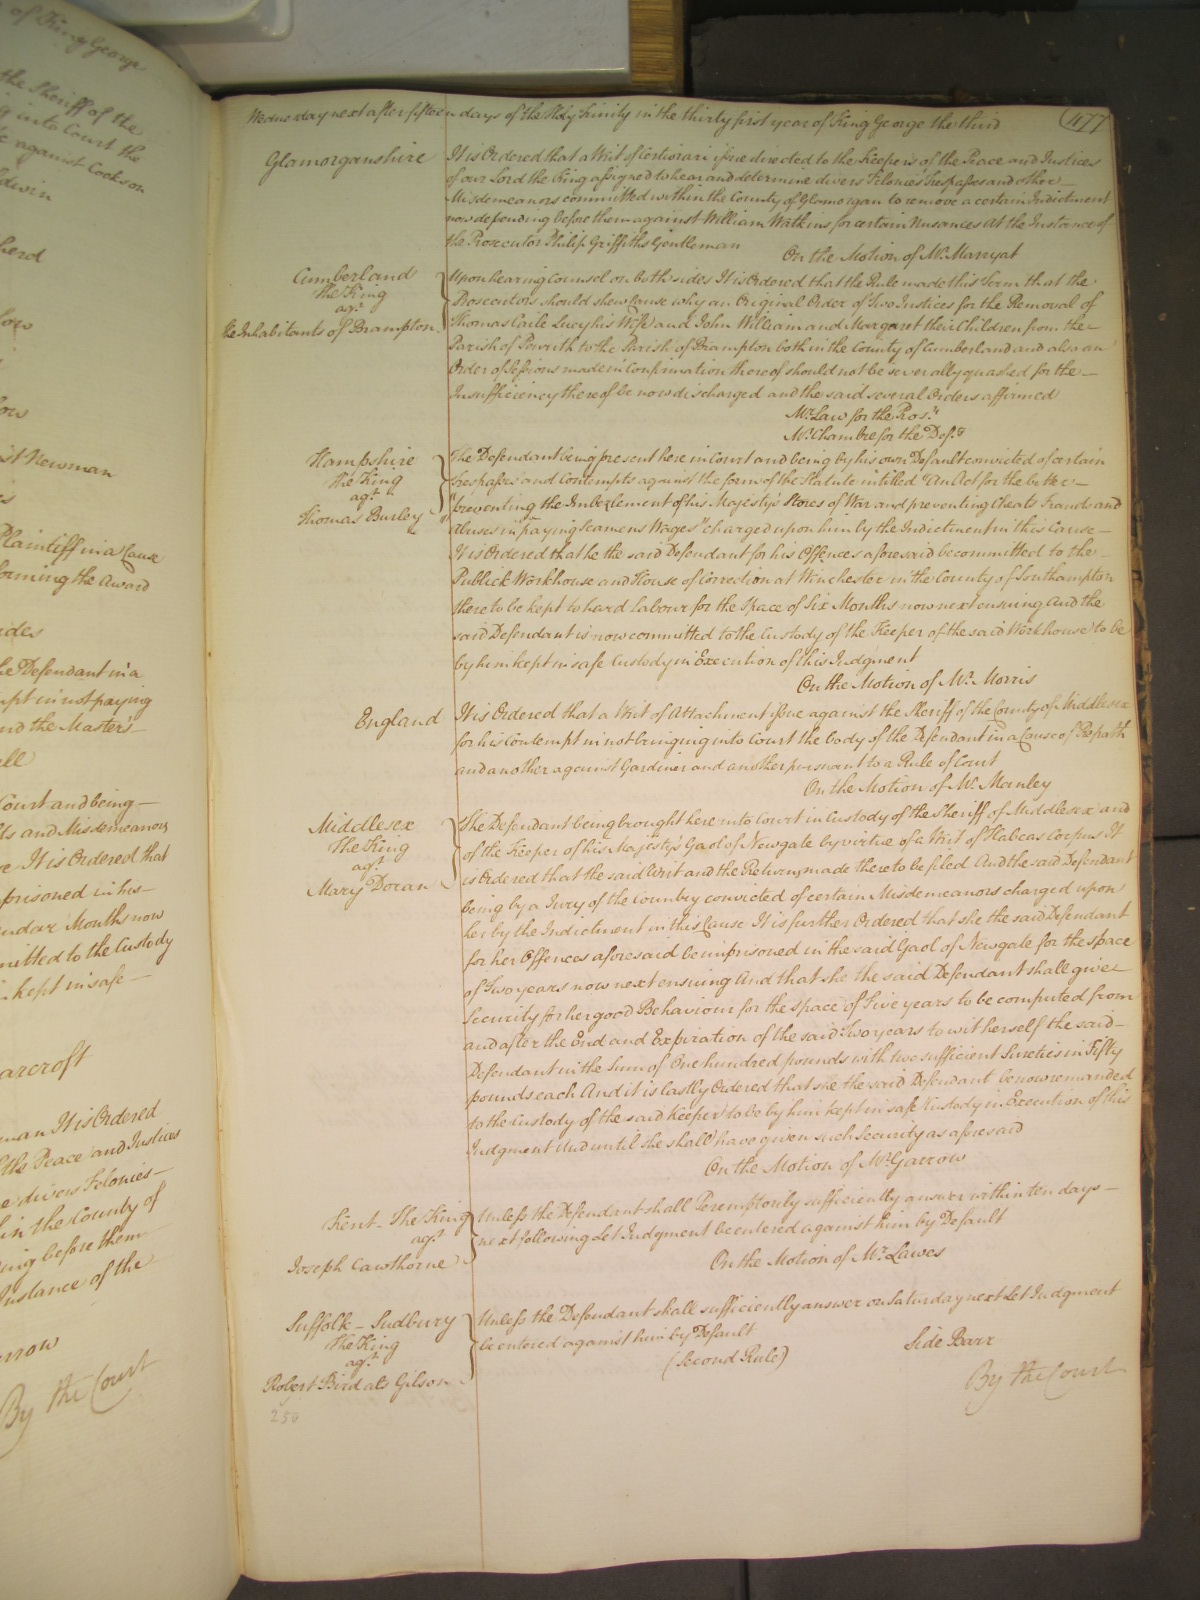 of King George
the Sheriff of the
into Court the
against Cookson
herd
low
st Newman
Plaintiff in a Cause
forming the Award
ides
he Defendant in a
mpt in not paying
and the Master's
Court and being
ts and Misdemeanors
It is Ordered that
prisoned in his
endar Months now
mitted to the Custody
kept in safe
arcroft
man It is Ordered
the Peace and Justices
divers Felonies
in the County of
ing before them
Instance of the
rrow
By the Court
Wednesday next after fifteen days of the Holy Trinity in the thirty first year of King George the third
477
Glamorganshire
It is Ordered that a Writ of Certiorari issue directed to the Keepers of the Peace and Justices
of our Lord the King assigned to hear and determine divers Felonies Trespasses and other
Misdemeanors committed within the County of Glamorgan to remove a certain Indictment
now depending before them against William Watkins for certain Nusances at the Instance of
the Prosecutor Philip Griffiths Gentleman
On the Motion of Mr. Marryat
Cumberland
The King
agt.
The Inhabitants of Brampton
Upon hearing Counsel on both sides It is Ordered that the Rule made this Term that the
Prosecutors should shew Cause why an Original Order of Two Justices for the Removal of
Thomas Carile Lucy his Wife and John William and Margaret their Children from the
Parish of Penrith to the Parish of Brampton both in the County of Cumberland and also an
Order of Sessions made in Confirmation thereof should not be severally quashed for the
Insufficiency thereof be now discharged and the said several Orders affirmed
Mr. Law for the Pros.rs
Mr. Chambre for the Def.t
Hampshire
The King
agt.
Thomas Burley
The Defendant being present here in Court and being by his own Default convicted of certain
Trespasses and Contempts against the form of the Statute intitled "An Act for the better
"preventing the Imbezlement of his Majesty's Stores of War and preventing Cheats Frauds and
"Abuses in paying Seamens Wages" charged upon him by the Indictment in this Cause
It is Ordered that he the said Defendant for his Offences aforesaid be committed to the
Publick Workhouse and House of Correction at Winchester in the County of Southampton
there to be kept to hard Labour for the Space of Six Months now next ensuing And the
said Defendant is now committed to the Custody of the Keeper of the said Workhouse to be
by him kept in safe Custody in Execution of this Judgment
On the Motion of Mr. Morris
England
It is Ordered that a Writ of Attachment issue against the Sheriff of the County of Middlesex
for his Contempt in not bringing into Court the body of the Defendant in a Cause of Hepath
and another against Gardiner and another pursuant to a Rule of Court
On the Motion of Mr. Manley
Middlesex
The King
agt.
Mary Doran
The Defendant being brought here into Court in Custody of the Sheriff of Middlesex and
of the Keeper of his Majesty's Gaol of Newgate by virtue of a Writ of Habeas Corpus It
is Ordered that the said Writ and the Return made thereto be filed And the said Defendant
being by a Jury of the Country convicted of certain Misdemeanors charged upon
her by the Indictment in this Cause It is further Ordered that she the said Defendant
for her Offences aforesaid be imprisoned in the said Gaol of Newgate for the space
of Two years now next ensuing And that she the said Defendant shall give
Security for her good Behaviour for the space of Five years to be computed from
and after the End and Expiration of the said Two years to wit herself the said
Defendant in the Sum of One hundred pounds with two sufficient Sureties in Fifty
pounds each And it is lastly Ordered that she the said Defendant be now remanded
to the Custody of the said Keeper to be by him kept in safe Custody in Execution of this
Judgment And until she shall have given such Security as aforesaid
On the Motion of Mr. Garrow
Kent - The King
agt.
Joseph Cawthorne
Unless the Defendant shall Peremptorily sufficiently answer within ten days
next following Let Judgment be entered against him by Default
On the Motion of Mr. Lawes
Suffolk - Sudbury
The King
agt.
Robert Bird als Gilson
Unless the Defendant shall sufficiently answer on Saturday next Let Judgment
be entered against him by Default
(Second Rule)
Side Barr
By the Court
250